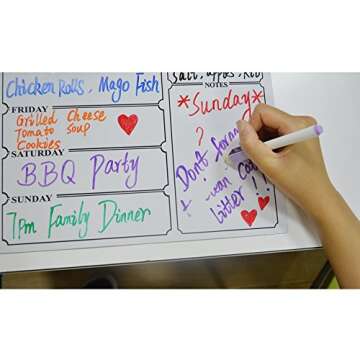 Chicken Rolls, Mago Fish
FRIDAY
Grilled Cheese
Tomato Soup
Cookies
SATURDAY
BBQ Party
SUNDAY
7pm Family Dinner
NOTES
*Sunday*
?
Dont
!
litter !!